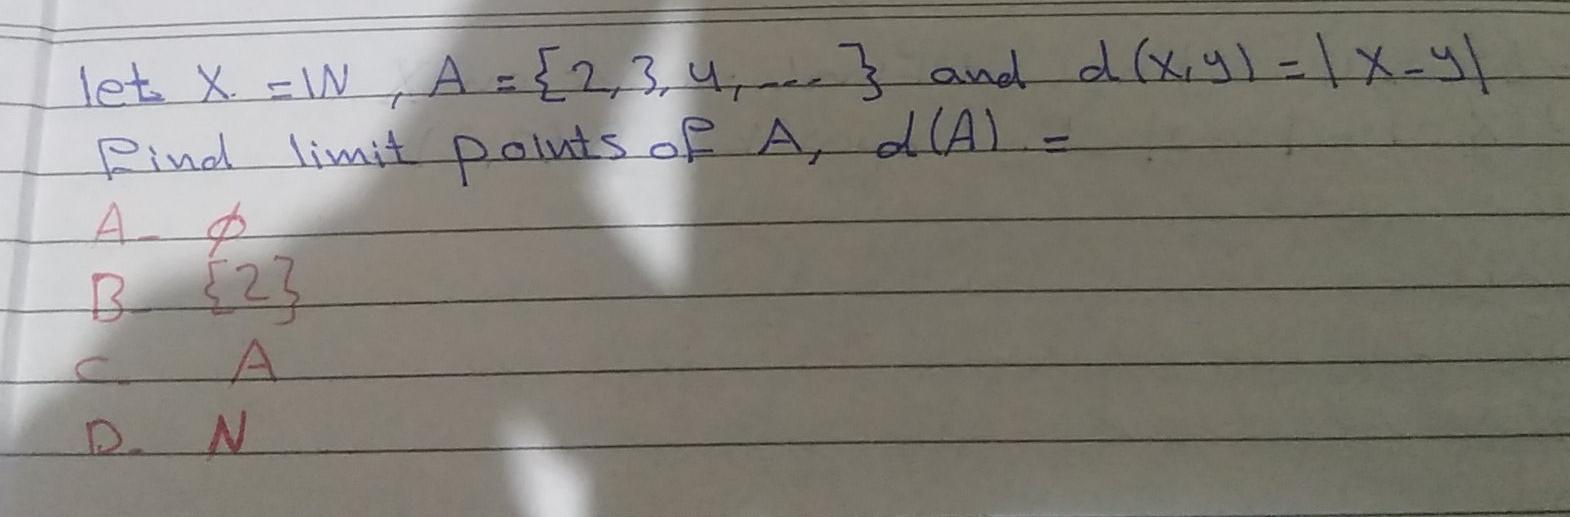 let X = ℕ , A = {2, 3, 4, ---- } and d(x,y) = | x - y |
Find limit points of A, d(A) =
A- φ
B- {2}
C- A
D- N